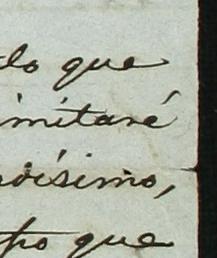 lo que
imitaré
ísimo,
po que